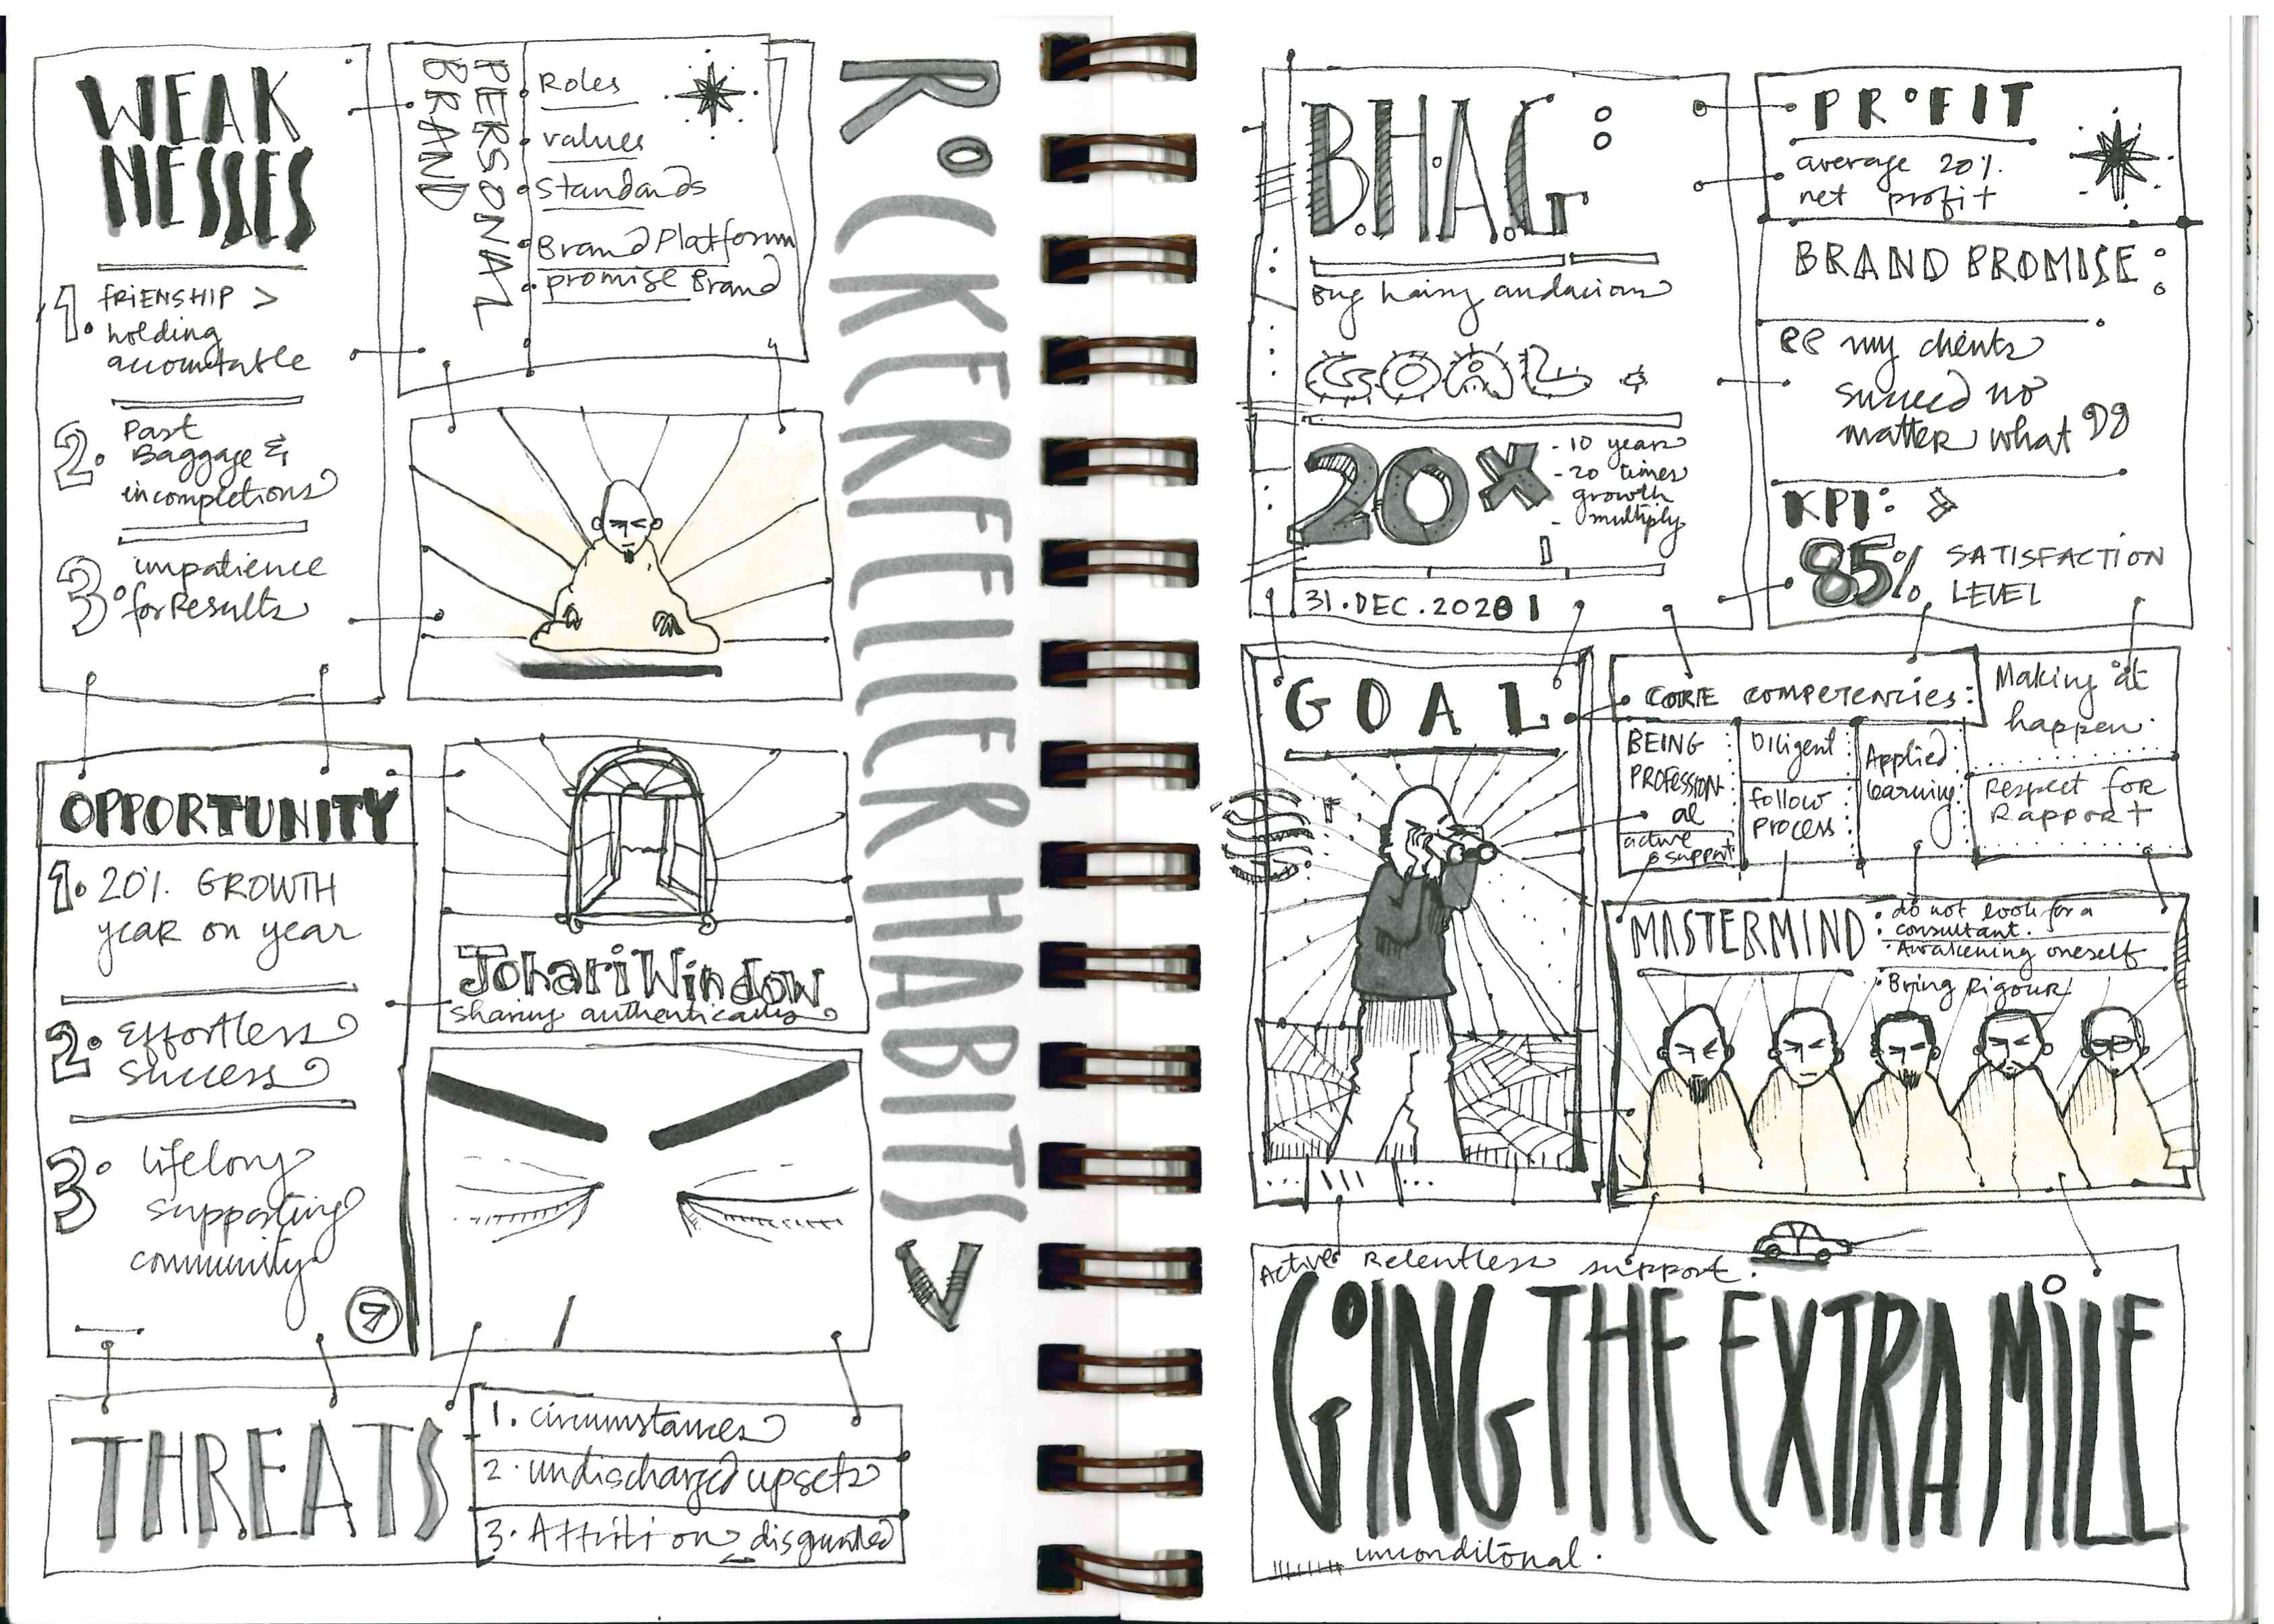 WEAK
NESSES
1. FRIENSHIP >
holding
accountable
2. Past
Baggage &
incompletions
3. impatience
for Results
PERSONAL
BRAND
Roles
values
Standards
Brand Platform
promise Brand
OPPORTUNITY
1. 20% GROWTH
year on year
2. Effortless
Success
3. lifelong
supporting
community
7
Johari Window
sharing authentically
THREATS
1. circumstances
2. undischarged upsets
3. Attrition disgrunted
ROCKERFELLLER HABITS
B.H.A.G:
Big hairy audacious
GOAL
20X
- 10 years
- 20 times
growth
- multiply
31.DEC.2020 1
PROFIT
average 20%
net profit
BRAND PROMISE:
"my clients
succeed no
matter what"
KPI:
85% SATISFACTION
LEVEL
GOAL
CORE competencies:
BEING
PROFESSION
al
active
support
Diligent
follow
process
Applied
learning
Making it
happen
Respect for
Rapport
MASTERMIND
• do not look for a
consultant.
• Awakening oneself
• Bring Rigour
Active Relentless support.
GOING THE EXTRA MILE
unconditonal.